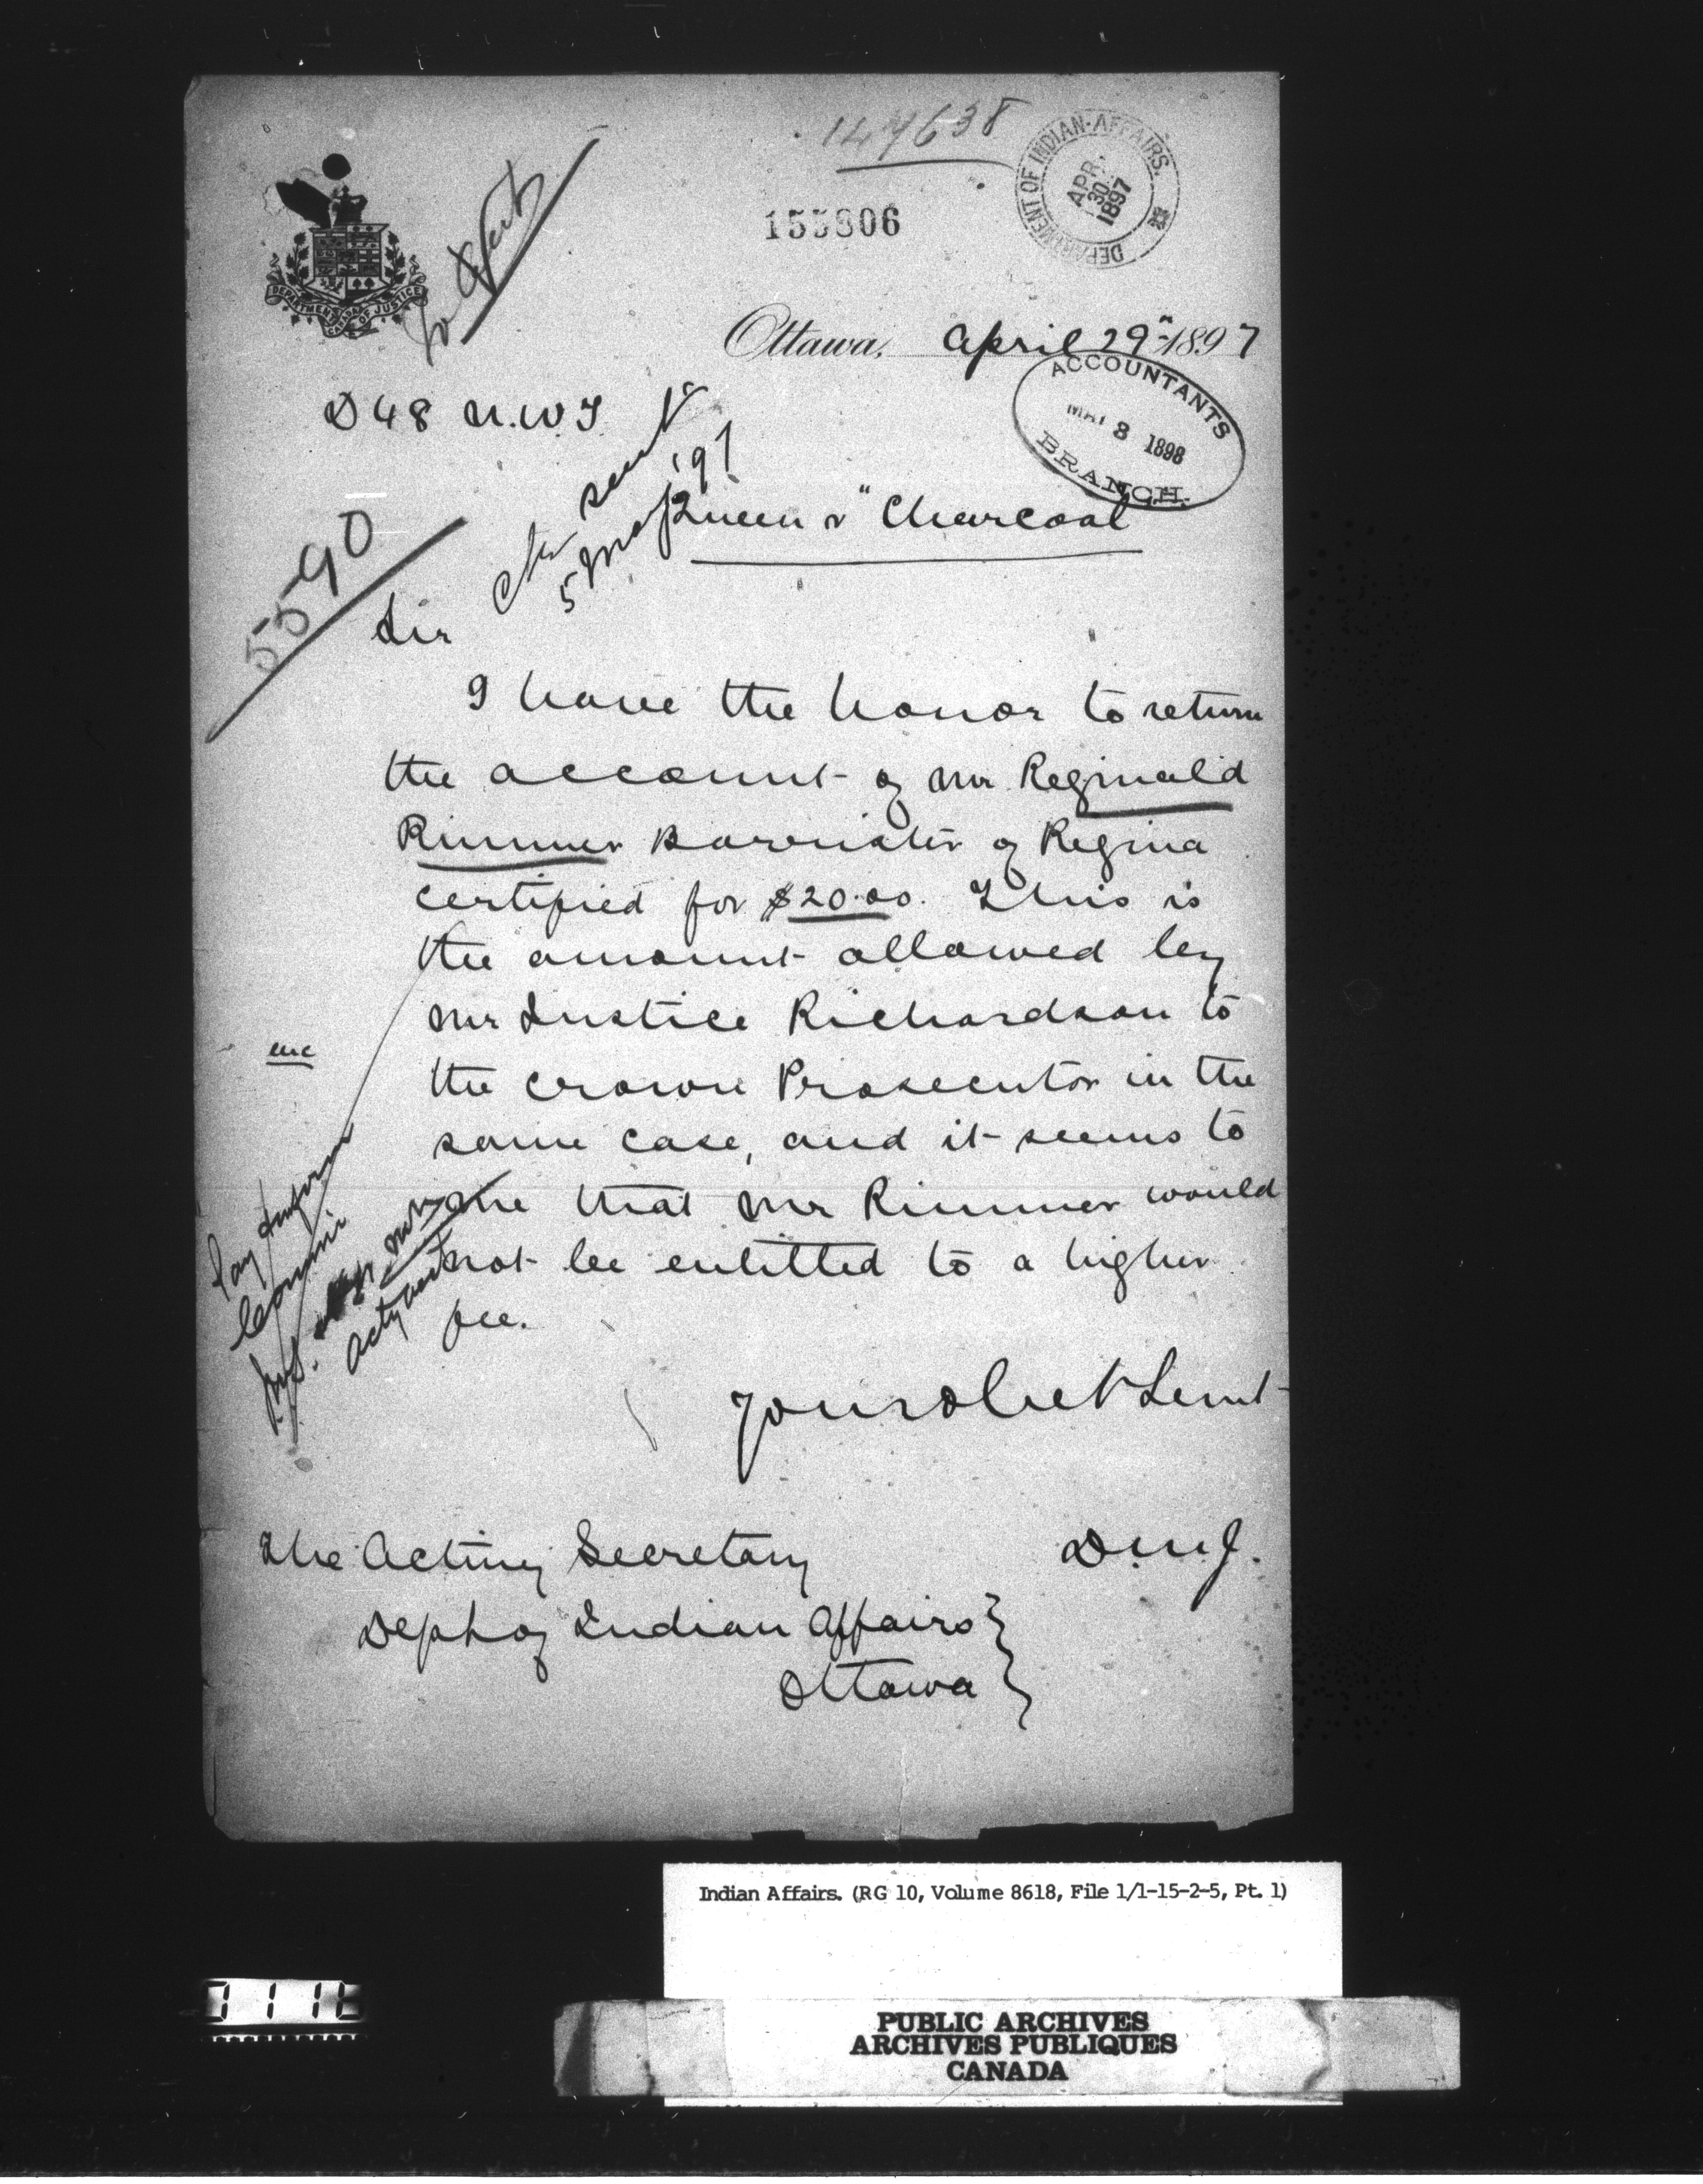 147638
DEPARTMENT OF INDIAN-AFFAIRS.
APR.
30
1897
155806
DEPARTMENT OF JUSTICE
CANADA
Ottawa, April 29" 1897
ACCOUNTANTS
BRANCH.
MAY 3 1898
D 48 N.W.T.
Ck sent
5 May '97
Queen v "Charcoal
5590
Sir
I have the honor to return
the account of Mr Reginald
Rimmer Barrister of Regina
certified for $20.00. This is
the amount allowed by
Mr Justice Richardson to
enc
the Crown Prosecutor in the
same case, and it seems to
me that Mr Rimmer would
not be entitled to a higher
fee.
Pay & inform
Commr
Your obet Servt
D.M.J.
The Acting Secretary
Dept of Indian Affairs
Ottawa
Indian Affairs. (RG 10, Volume 8618, File 1/1-15-2-5, Pt. 1)
PUBLIC ARCHIVES
ARCHIVES PUBLIQUES
CANADA